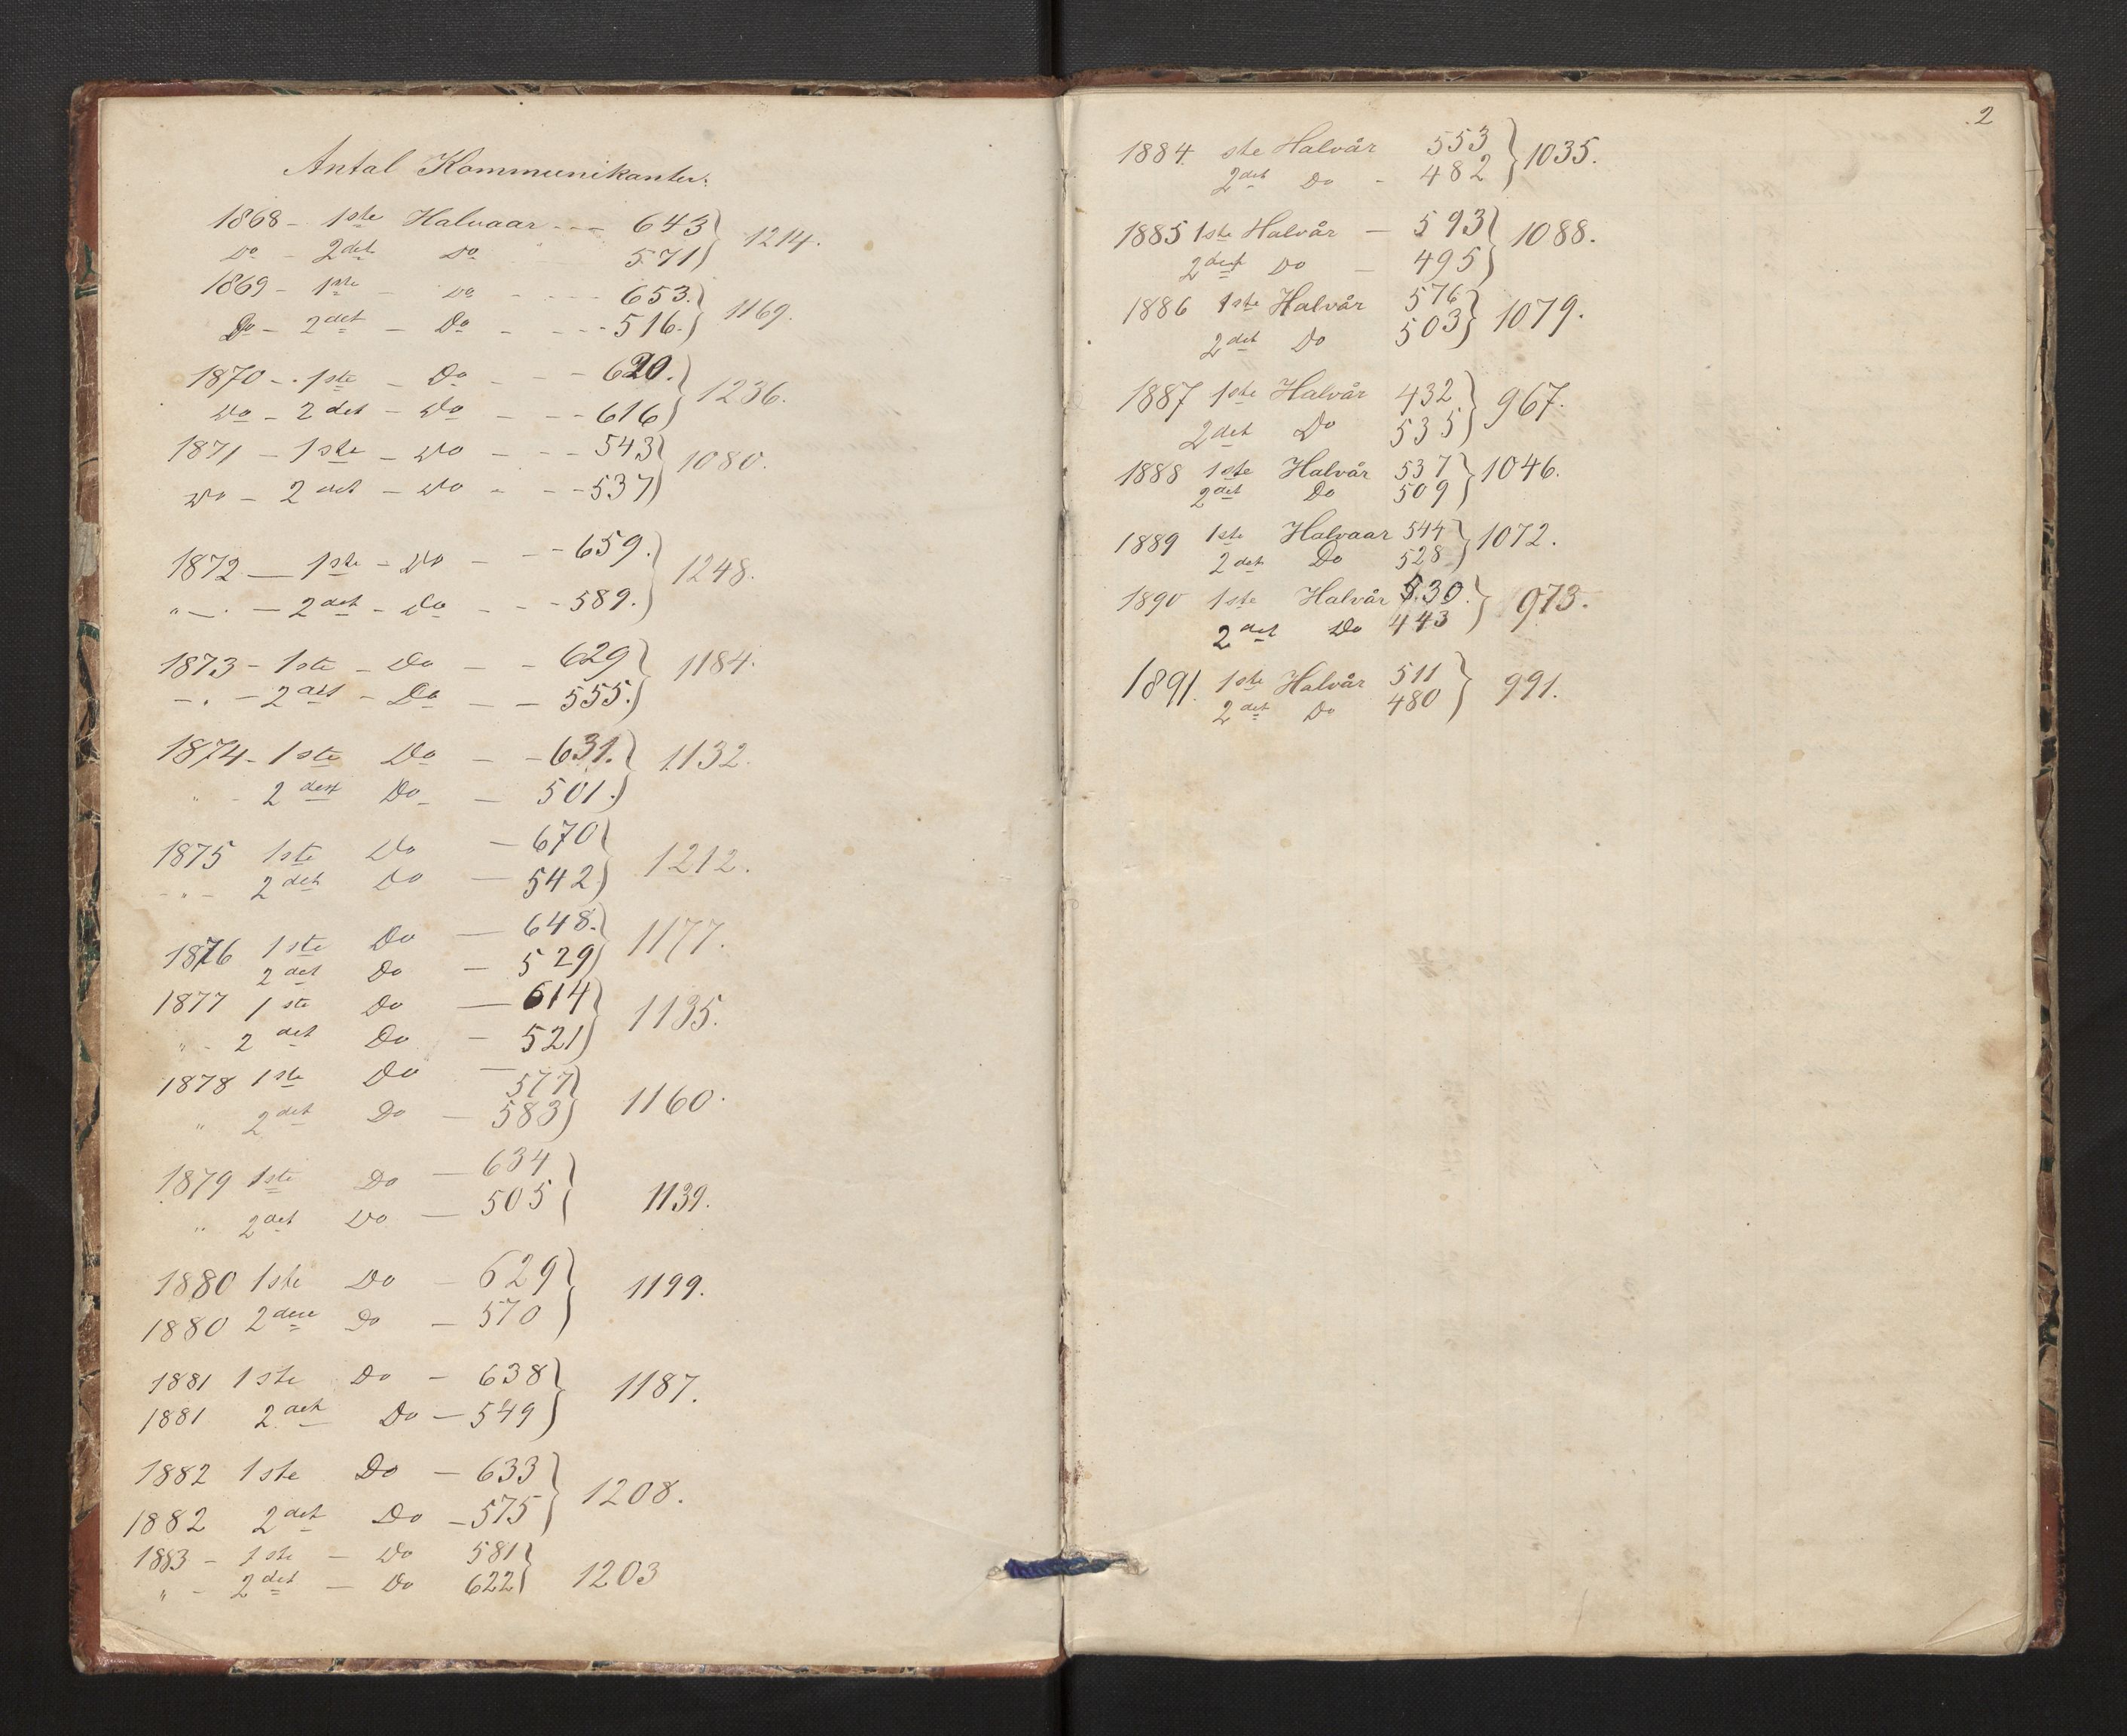 Antal Kommunikanter.
1868 - 1ste Halvaar - - - 643 } 1214.
Do - 2det Do 571
1869 - 1ste - Do - - - - 653. } 1169.
Do - 2det - Do - - - - 516.
1870 - . 1ste - Do - - - 620. } 1236.
Do - 2det - Do - - - - 616
1871 - 1ste - Do - - - 543 } 1080.
Do - 2det - Do - - - 537
1872 — 1ste - Do - - - 659. } 1248.
" — . — 2det - Do - - - 589.
1873 - 1ste - Do - - 629 } 1184.
- . - 2det - Do - - 555.
1874 - 1ste Do - - 631. } 1132.
" - 2det Do - - 501.
1875 1ste Do - 670 } 1212.
- " - 2det Do - 542
1876 1ste Do - 648. } 1177.
2det Do - 529
1877 1ste Do — 614 } 1135.
" - 2det Do - 521
1878 1ste Do — 577 } 1160.
" 2det Do — 583
1879 1ste Do — 634 } 1139.
" 2det Do — 505
1880 1ste Do - 629 } 1199.
1880 2den Do - 570
1881 1ste Do - 638 } 1187.
1881 2det Do - 549
1882 1ste Do - 633 } 1208.
1882 2det Do - 575
1883 - 1ste - Do 581 } 1203
" - 2det — Do 622
2
1884 ste Halvår 553 } 1035.
2det Do - 482
1885 1ste Halvår - 593 } 1088.
2det Do - 495
1886 1ste Halvår 576 } 1079.
2det Do 503
1887 1ste Halvår 432 } 967.
2det Do 535
1888 1ste Halvår 537 } 1046.
2det Do 509
1889 1ste Halvaar 544 } 1072.
2det Do 528
1890 1ste Halvår 530. } 973.
2det Do 443
1891. 1ste Halvår 511 } 991.
2det Do 480